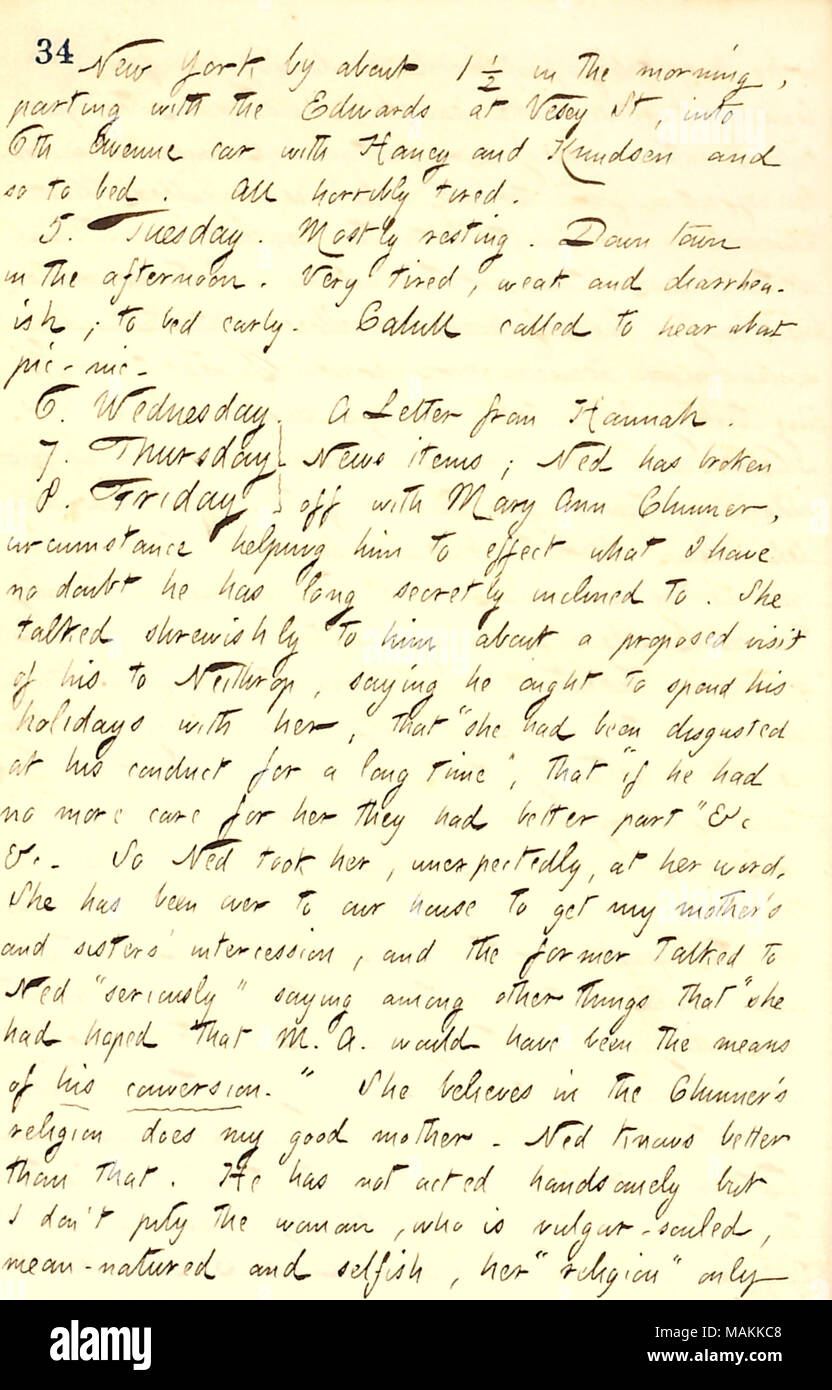 34
New York by about 1 ½ in the morning,
parting with the Edwards at Vesey St, into
6th Avenue car with Haney and Knudsen and
so to bed. All horribly tired.
5. Tuesday. Mostly resting. Down town
in the afternoon. Very tired, weak and diarrhea-
ish; to bed early. Cahill called to hear about
pic-nic.
6. Wednesday. A Letter from Hannah.
7. Thursday } News items; Ned has broken
8. Friday } off with Mary Ann Chinner,
circumstance helping him to effect what I have
no doubt he has long secretly inclined to. She
talked shrewishly to him about a proposed visit
of his to Neithrop, saying he ought to spend his
holidays with her, that "she had been disgusted
at his conduct for a long time", that "if he had
no more care for her they had better part" &c
&c. So Ned took her, unexpectedly, at her word.
She has been over to our house to get my mother's
and sisters' intercession, and the former talked to
Ned "seriously" saying among other things that "she
had hoped that M. A. would have been the means
of his conversion." She believes in the Chinner's
religion does my good mother. Ned knows better
than that. He has not acted handsomely but
I don't pity the woman, who is vulgar-souled,
mean-natured and selfish, her "religion" only
alamy
Image ID: MAKKC8
www.alamy.com